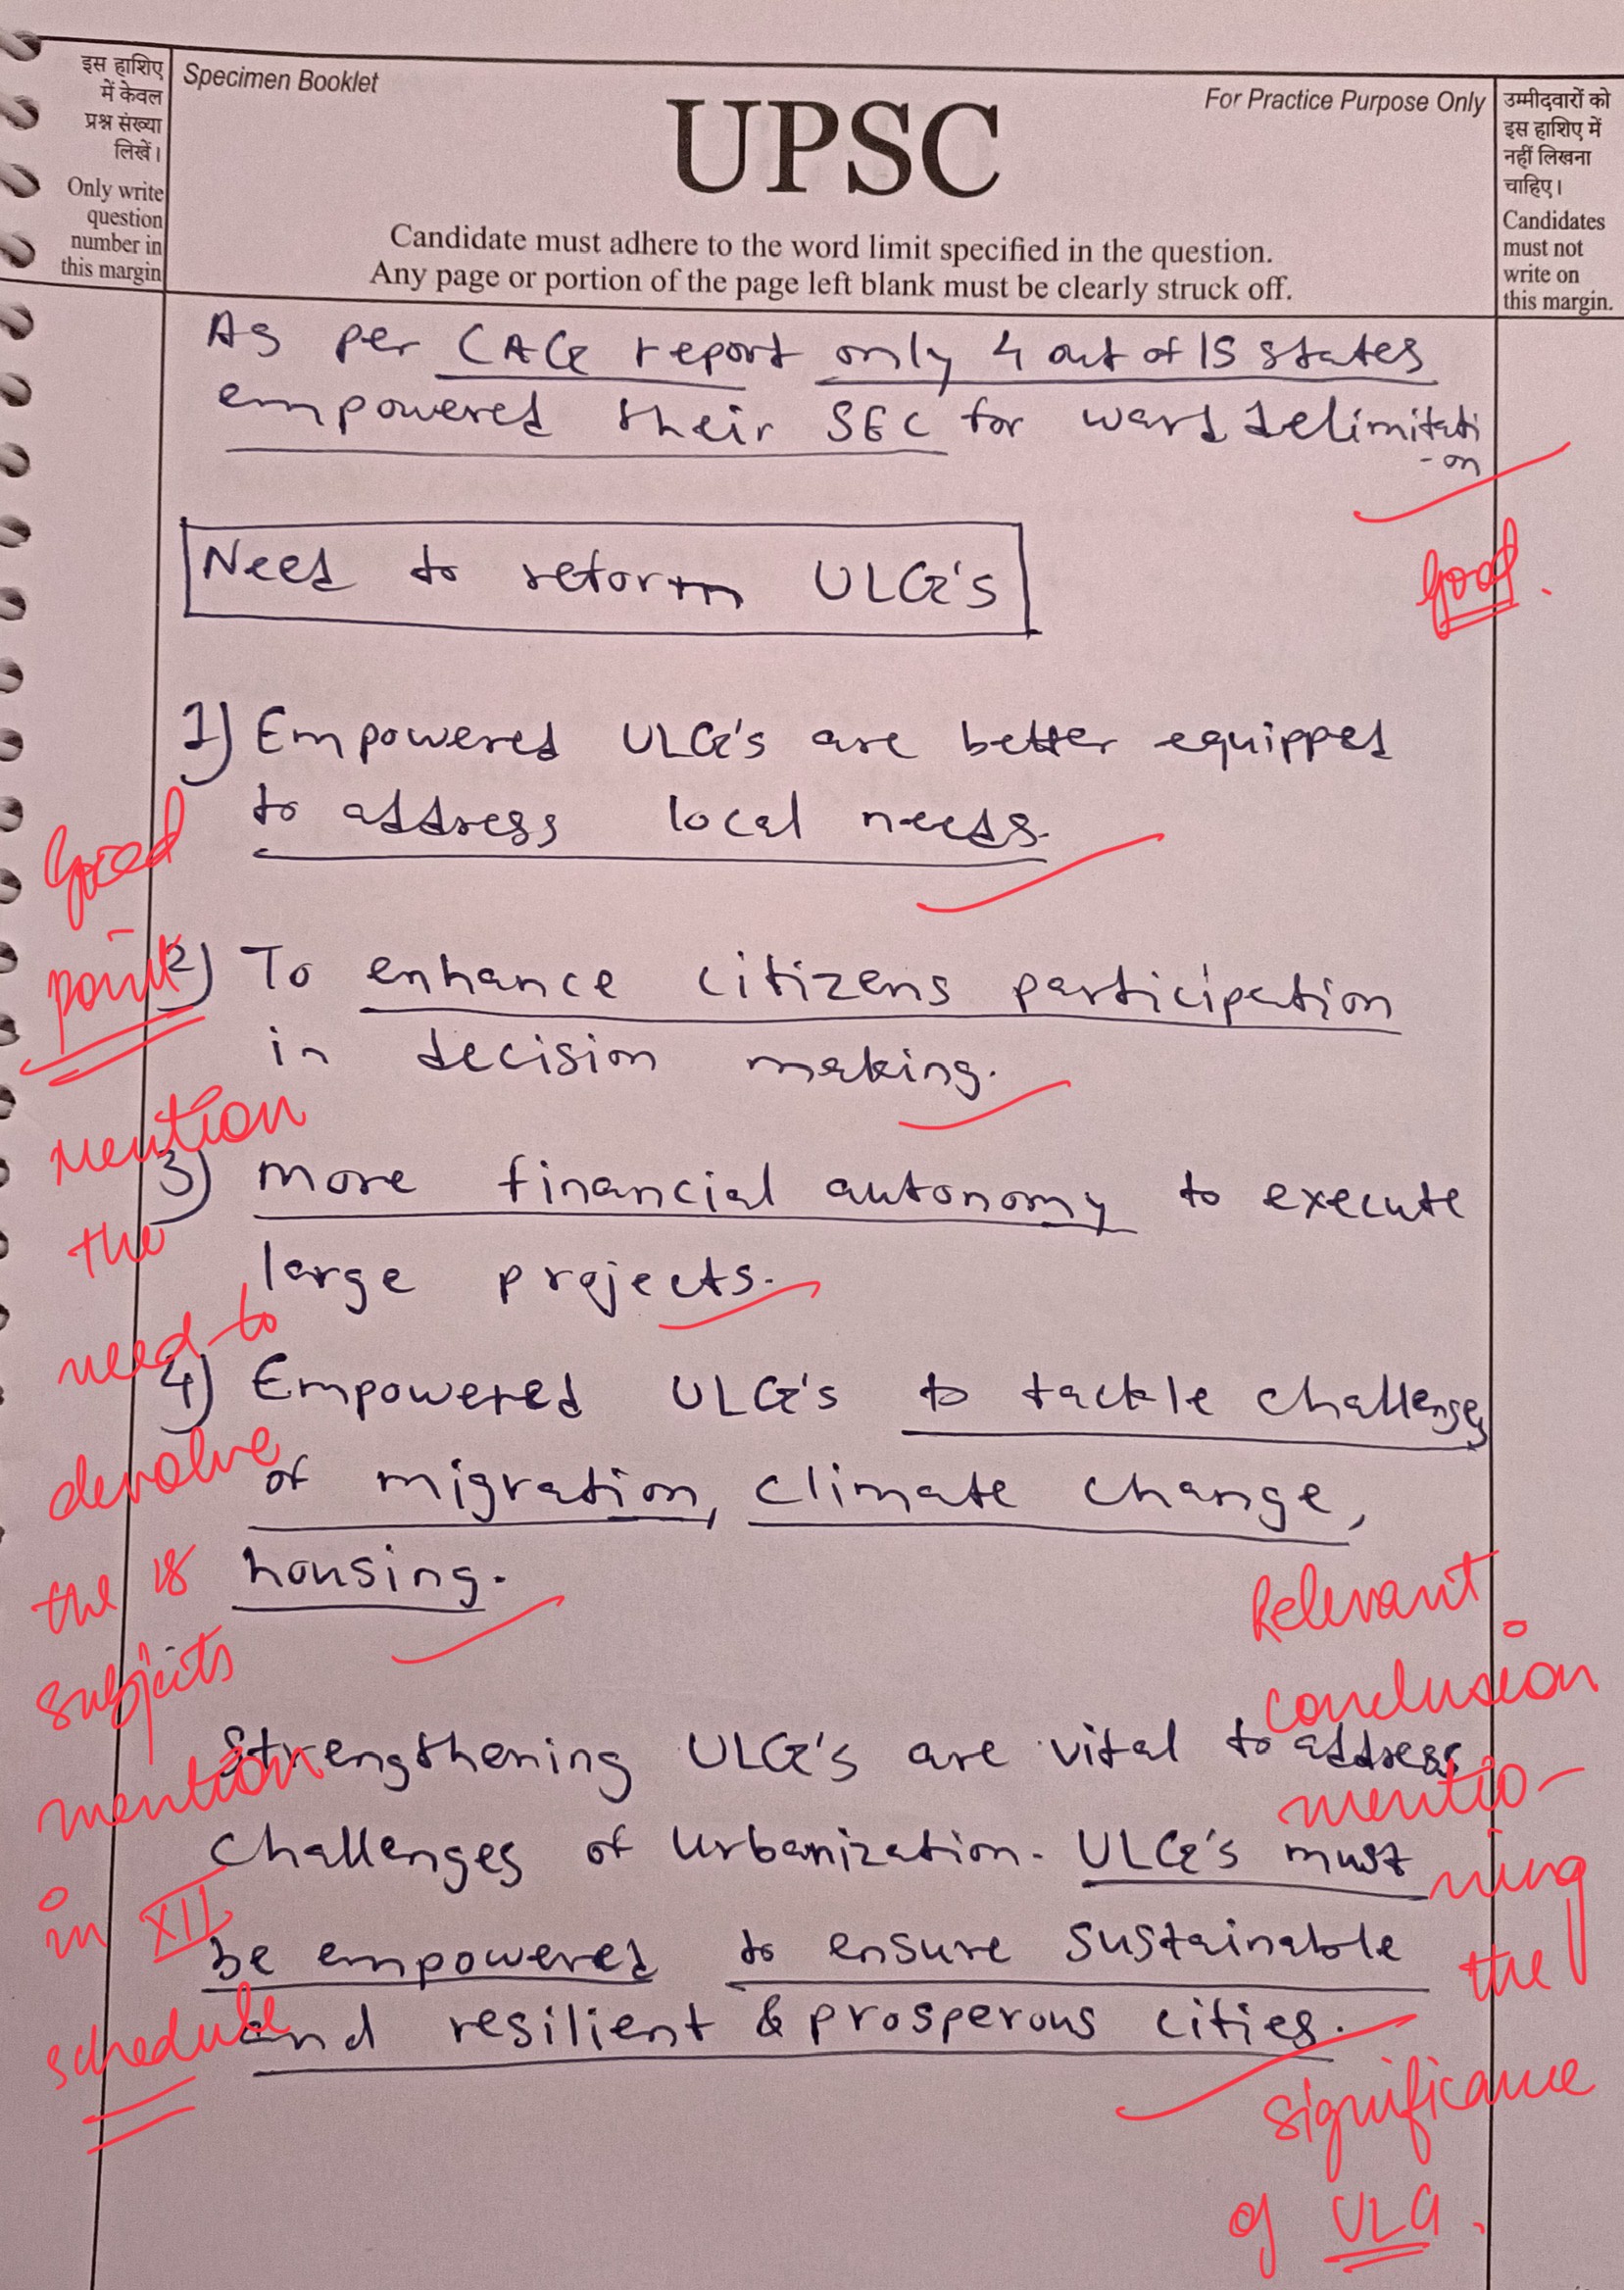 इस हाशिए
में केवल
प्रश्न संख्या
लिखें।
Only write
question
number in
this margin
Specimen Booklet
UPSC
For Practice Purpose Only
Candidate must adhere to the word limit specified in the question.
Any page or portion of the page left blank must be clearly struck off.
उम्मीदवारों को
इस हाशिए में
नहीं लिखना
चाहिए।
Candidates
must not
write on
this margin.
As per CAG report only 4 out of 15 states
empowered their SEC for ward delimitati
-on
Good.
Need to reform ULG's
1) Empowered ULG's are better equipped
to address local needs.
Good
point
2) To enhance citizens participation
in decision making.
3) More financial autonomy to execute
large projects.
4) Empowered ULG's to tackle challenges
of migration, climate change,
housing.
Mention
the
need to
devolve
the 18
subjects
mention
in XII
schedule
Strengthening ULG's are vital to address
challenges of urbanization. ULG's must
be empowered to ensure sustainable
and resilient & prosperous cities.
Relevant
conclusion
mentio-
ning
the
significance
of ULG.